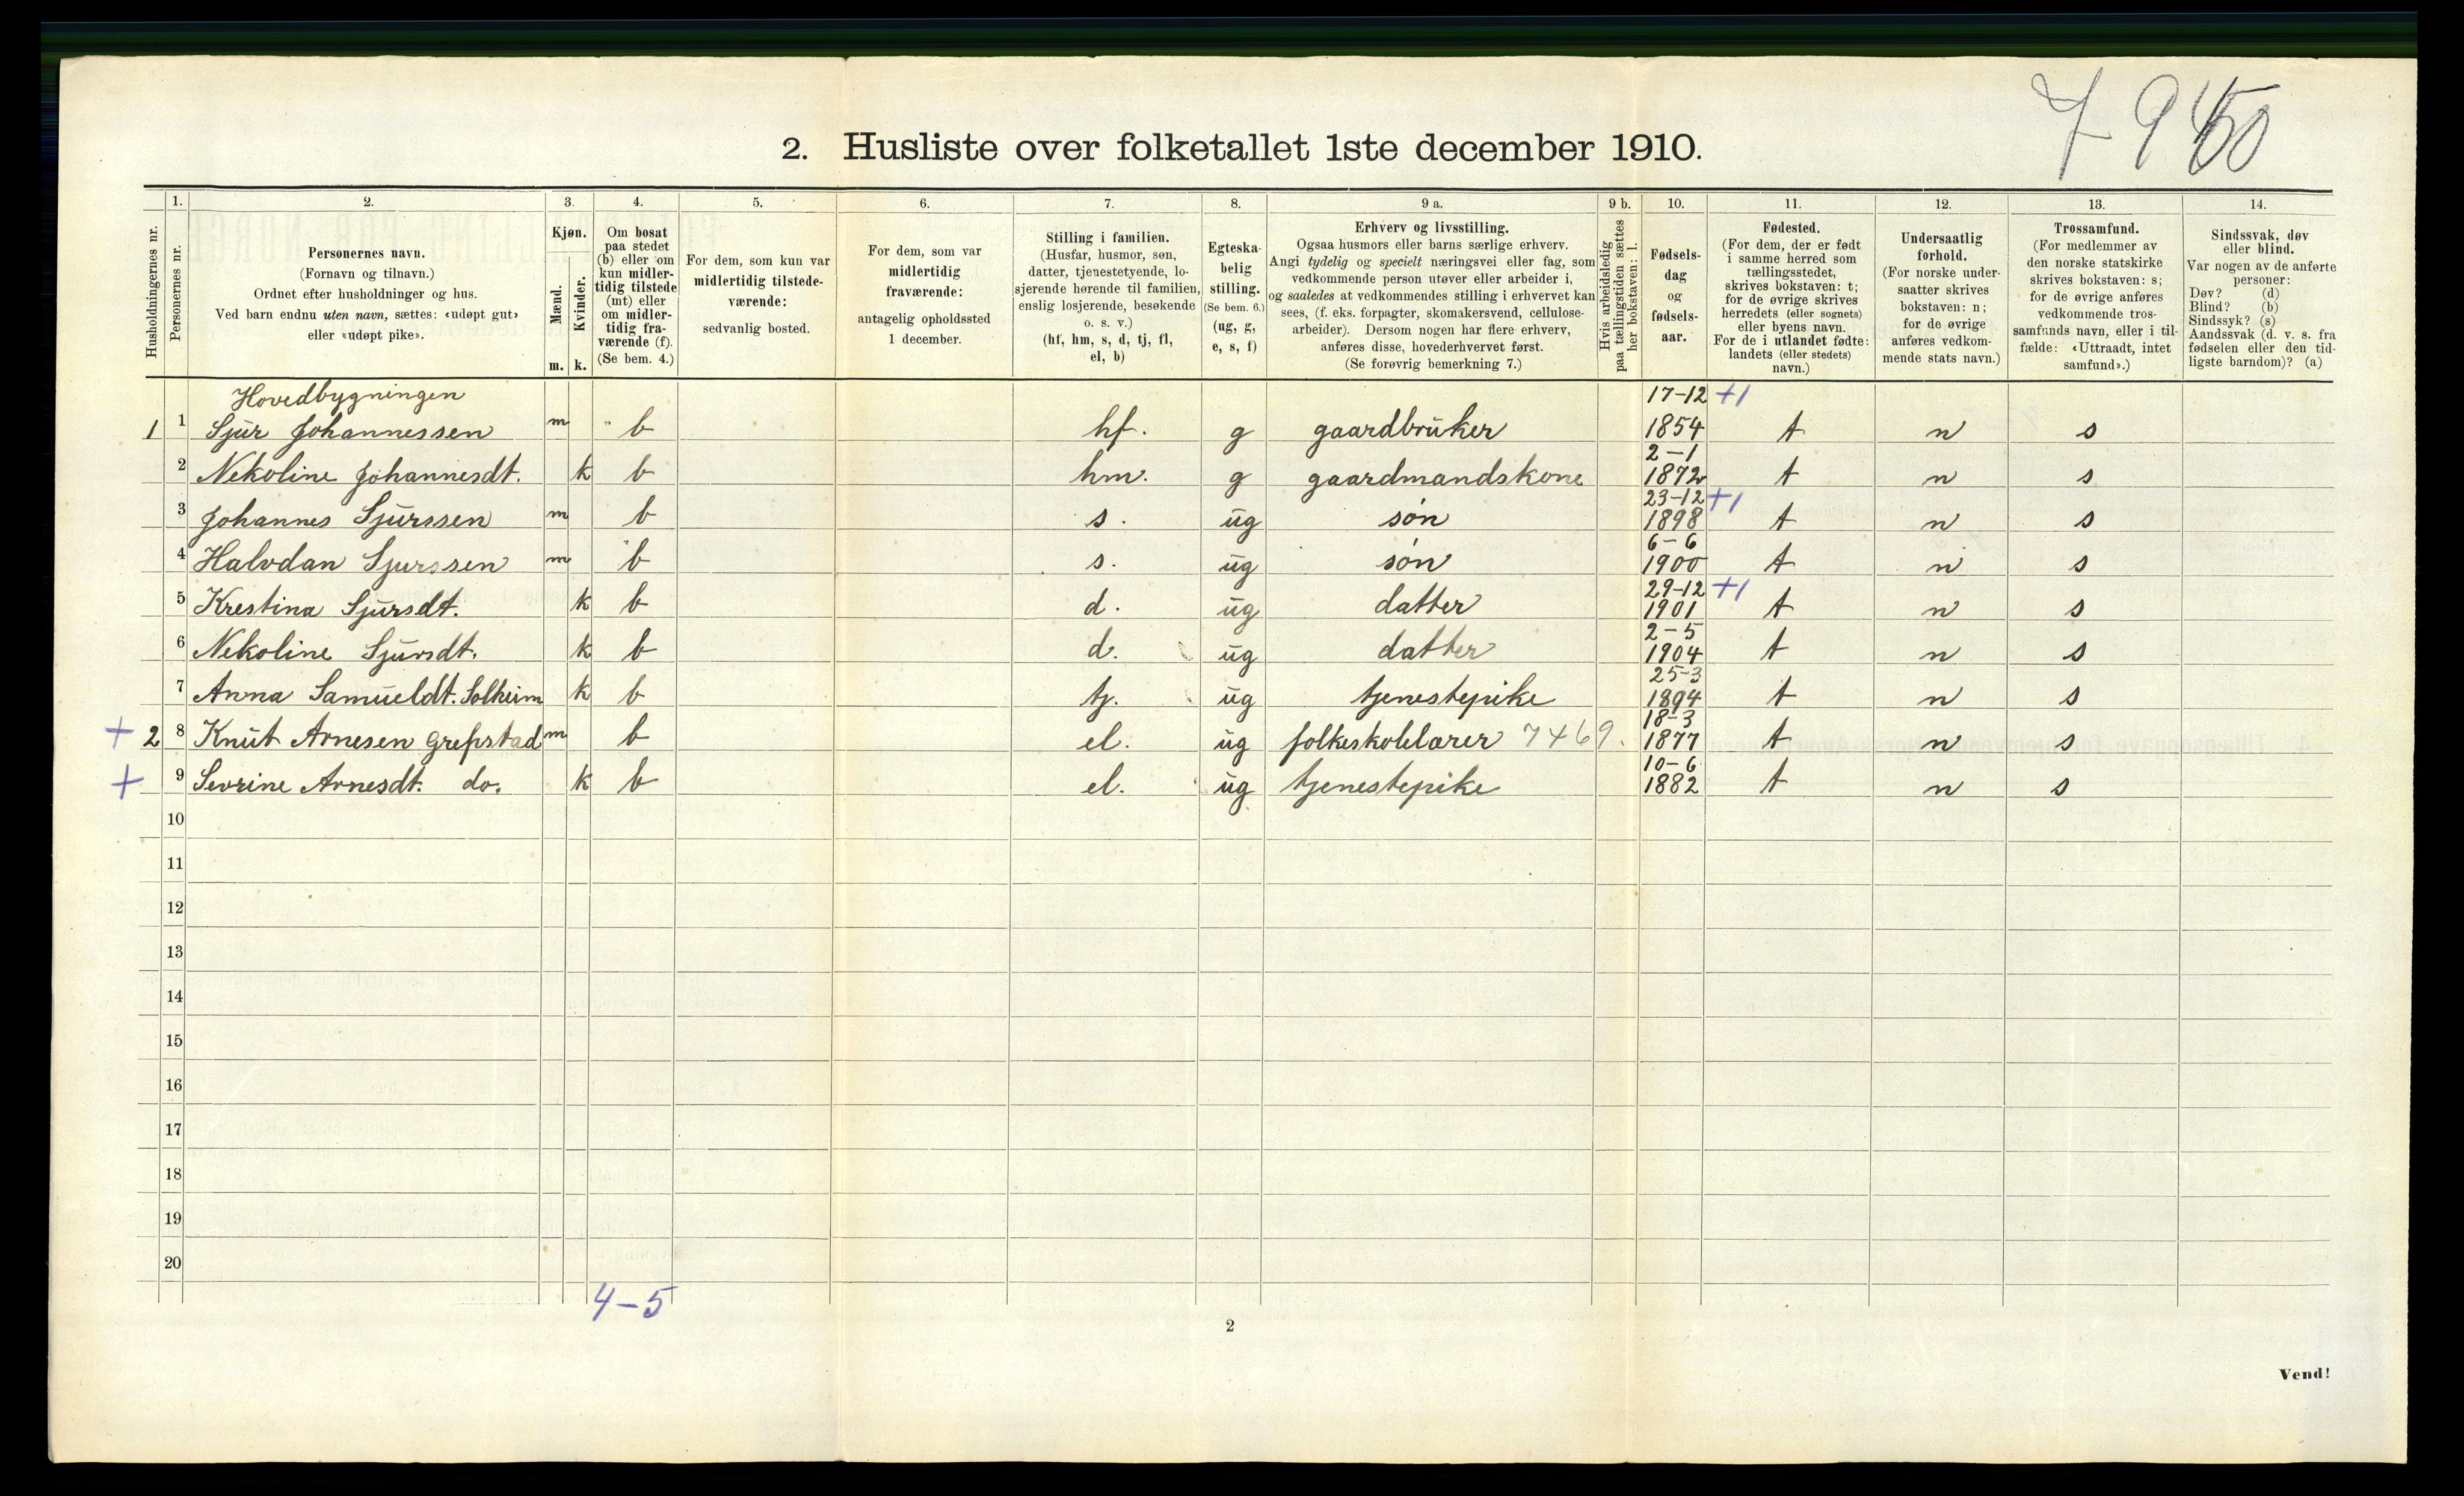 7950
2. Husliste over folketallet 1ste december 1910.
Husholdningernes nr.
1. Personernes nr.
2.
Personernes navn.
(Fornavn og tilnavn.)
Ordnet efter husholdninger og hus.
Ved barn endnu uten navn, sættes: «udøpt gut»
eller «udøpt pike».
3.
Kjøn.
Mænd. m.
Kvinder. k.
4.
Om bosat
paa stedet
(b) eller om
kun midler-
tidig tilstede
(mt) eller
om midler-
tidig fra-
værende (f).
(Se bem. 4.)
5.
For dem, som kun var
midlertidig tilstede-
værende:
sedvanlig bosted.
6.
For dem, som var
midlertidig
fraværende:
antagelig opholdssted
1 december.
7.
Stilling i familien.
(Husfar, husmor, søn,
datter, tjenestetyende, lo-
sjerende hørende til familien,
enslig losjerende, besøkende
o. s. v.)
(hf, hm, s, d, tj, fl,
el, b)
8.
Egteska-
belig
stilling.
(Se bem. 6.)
(ug, g,
e, s, f)
9 a.
Erhverv og livsstilling.
Ogsaa husmors eller barns særlige erhverv.
Angi tydelig og specielt næringsvei eller fag, som
vedkommende person utøver eller arbeider i,
og saaledes at vedkommendes stilling i erhvervet kan
sees, (f. eks. forpagter, skomakersvend, cellulose-
arbeider). Dersom nogen har flere erhverv,
anføres disse, hovederhvervet først.
(Se forøvrig bemerkning 7.)
9 b.
Hvis arbeidsledig
paa tællingstiden sættes
her bokstaven: l.
10.
Fødsels-
dag
og
fødsels-
aar.
11.
Fødested.
(For dem, der er født
i samme herred som
tællingsstedet,
skrives bokstaven: t;
for de øvrige skrives
herredets (eller sognets)
eller byens navn.
For de i utlandet fødte:
landets (eller stedets)
navn.)
12.
Undersaatlig
forhold.
(For norske under-
saatter skrives
bokstaven: n;
for de øvrige
anføres vedkom-
mende stats navn.)
13.
Trossamfund.
(For medlemmer av
den norske statskirke
skrives bokstaven: s;
for de øvrige anføres
vedkommende tros-
samfunds navn, eller i til-
fælde: «Uttraadt, intet
samfund».)
14.
Sindssvak, døv
eller blind.
Var nogen av de anførte
personer:
Døv? (d)
Blind? (b)
Sindssyk? (s)
Aandssvak (d. v. s. fra
fødselen eller den tid-
ligste barndom)? (a)
Hovedbygningen 17-12 +1
1 1 Sjur Johannessen m b hf. g gaardbruker 1854 t n s
2-1
2 Nekoline Johannesdt. k b hm. g gaardmandskone 1872 t n s
23-12 +1
3 Johannes Sjurssen m b s. ug søn 1898 t n s
6-6
4 Halvdan Sjurssen m b s. ug søn 1900 t n s
29-12 +1
5 Krestina Sjursdt. k b d. ug datter 1901 t n s
2-5
6 Nekoline Sjursdt. k b d. ug datter 1904 t n s
25-3
7 Anna Samueldt. Solheim k b tj. ug tjenestepike 1894 t n s
18-3
+ 2 8 Knut Arnesen Grepstad m b el. ug folkeskolelærer 7469. 1877 t n s
10-6
+ 9 Sevrine Arnesdt. do. k b el. ug tjenestepike 1882 t n s
10
11
12
13
14
15
16
17
18
19
20
4-5
2
Vend!